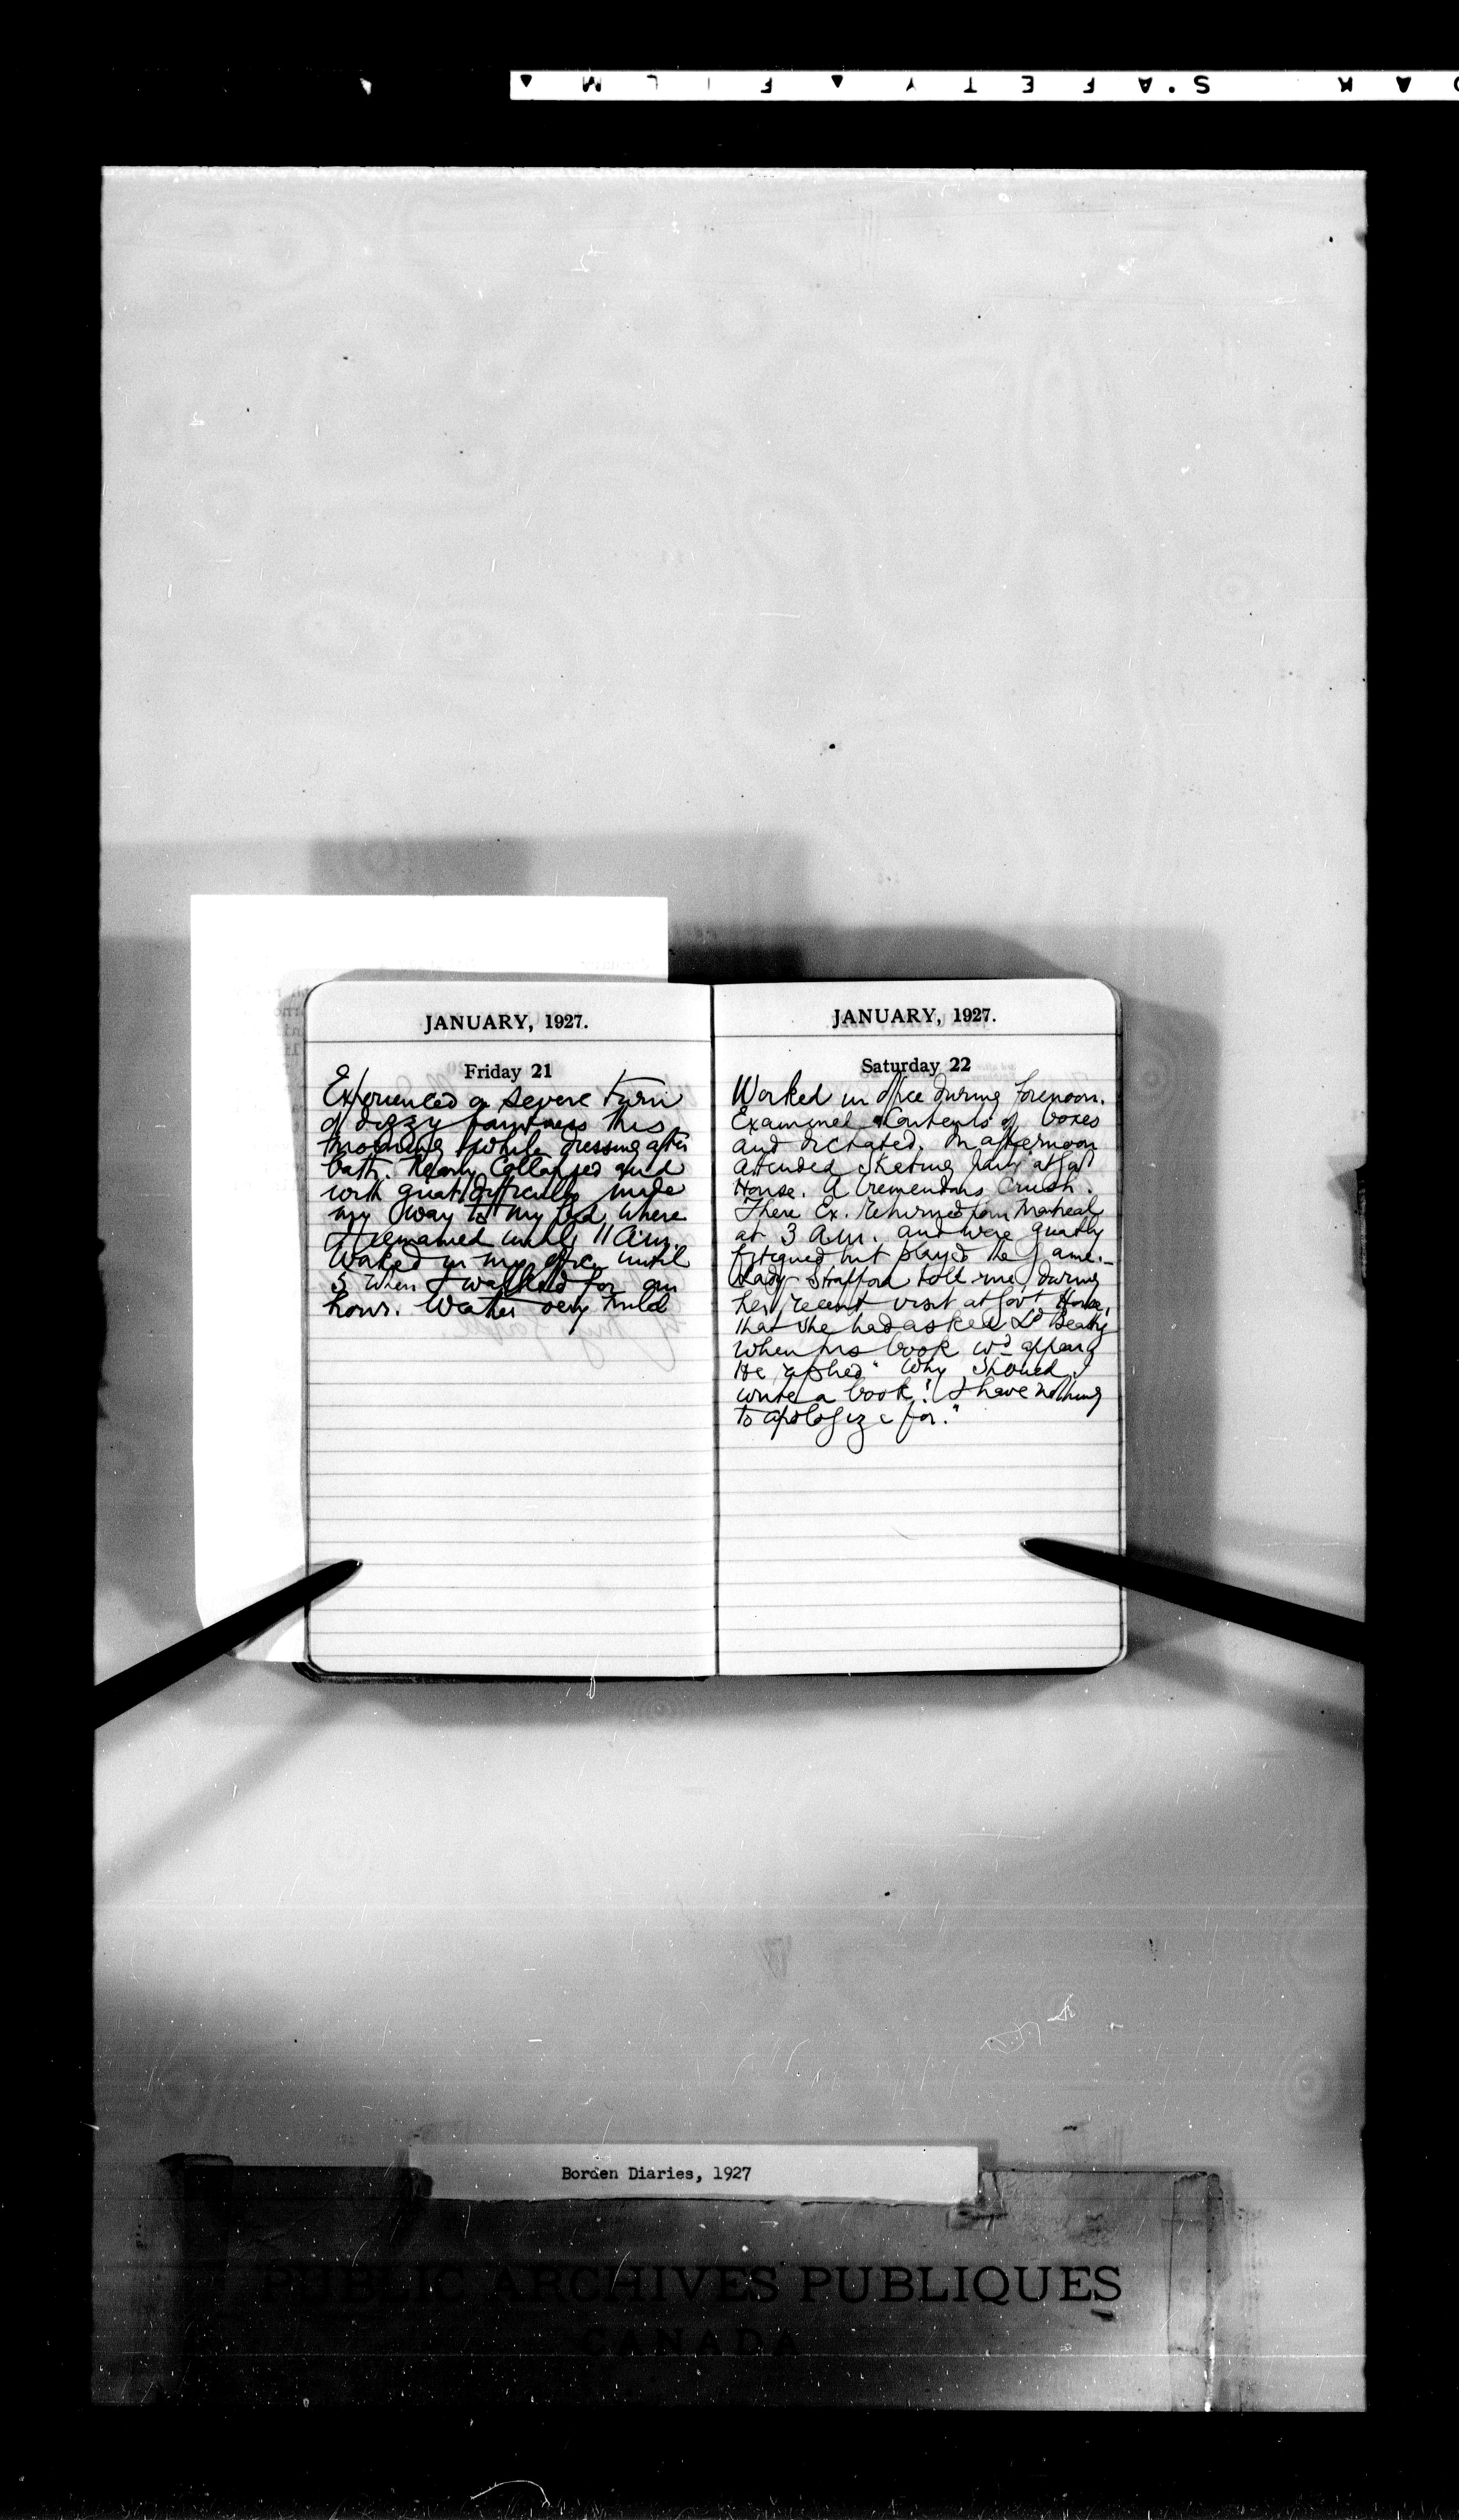 JANUARY, 1927.
Friday 21
Experienced a severe turn
of dizzy faintness this
morning while dressing after
bath. Nearly collapsed and
with great difficulty made
my way to my bed where
I remained until 11 a.m.
Worked in my office until
5 when I walked for an
hour. Weather very mild
JANUARY, 1927.
Saturday 22
Worked in office during forenoon.
Examined contents of boxes
and dictated. In afternoon
attended skating party at Govt
House. A tremendous crush.
Their Ex. returned from Montreal
at 3 a.m. and were greatly
fatigued but played the game.-
Lady Strafford told me, during
her recent visit at Govt House,
that she had asked Ld Beatty
when his book wd appear
He replied "Why should I
write a book! I have nothing
to apologize for."
Borden Diaries, 1927
PUBLIC ARCHIVES PUBLIQUES
CANADA